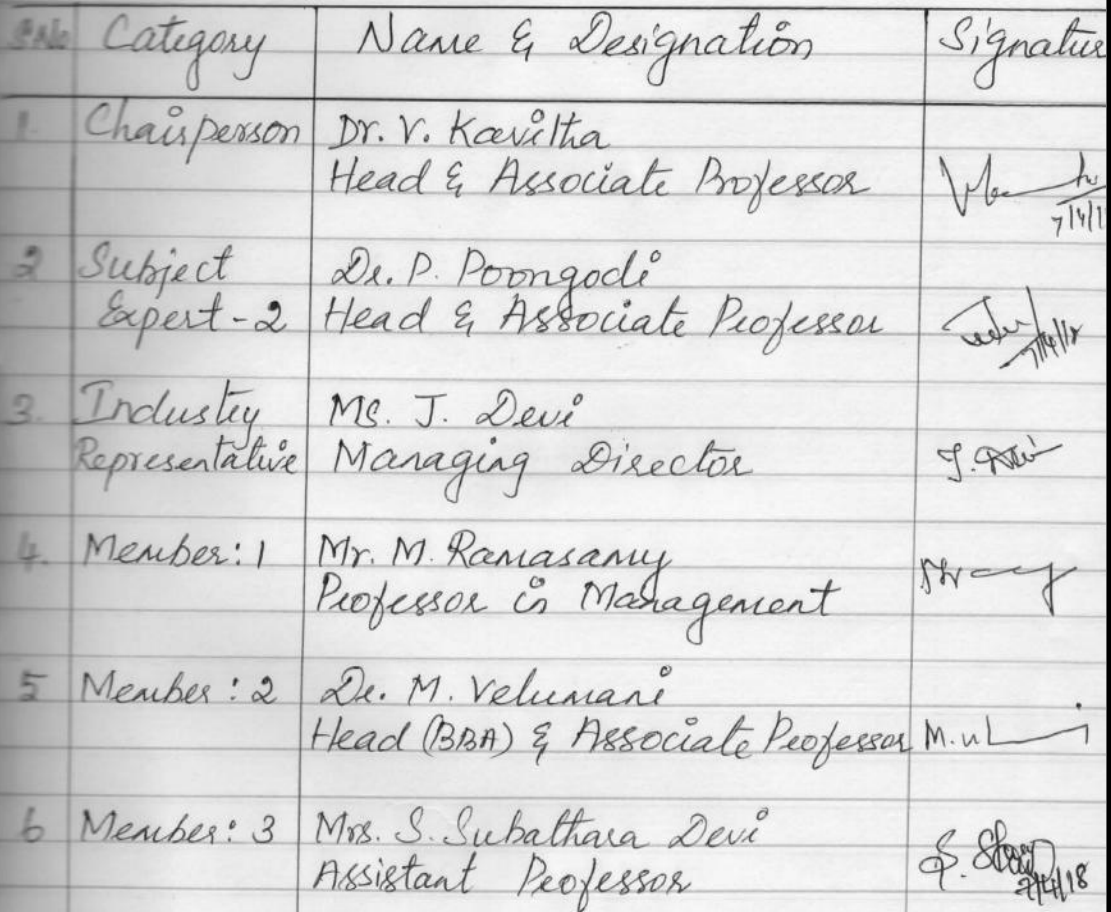 S.No Category Name & Designation Signatur
1. Chairperson Dr. V. Kavitha
Head & Associate Professor
7/4/1
2 Subject Dr. P. Poongodi
Expert-2 Head & Associate Professor
7/4/18
3. Industry Ms. J. Devi
Representative Managing Director J. Devi
4. Member: 1 Mr. M. Ramasamy
Professor in Management
5 Member: 2 Dr. M. Velumani
Head (BBA) & Associate Professor
6 Member: 3 Mrs. S. Subathara Devi
Assistant Professor
7/4/18